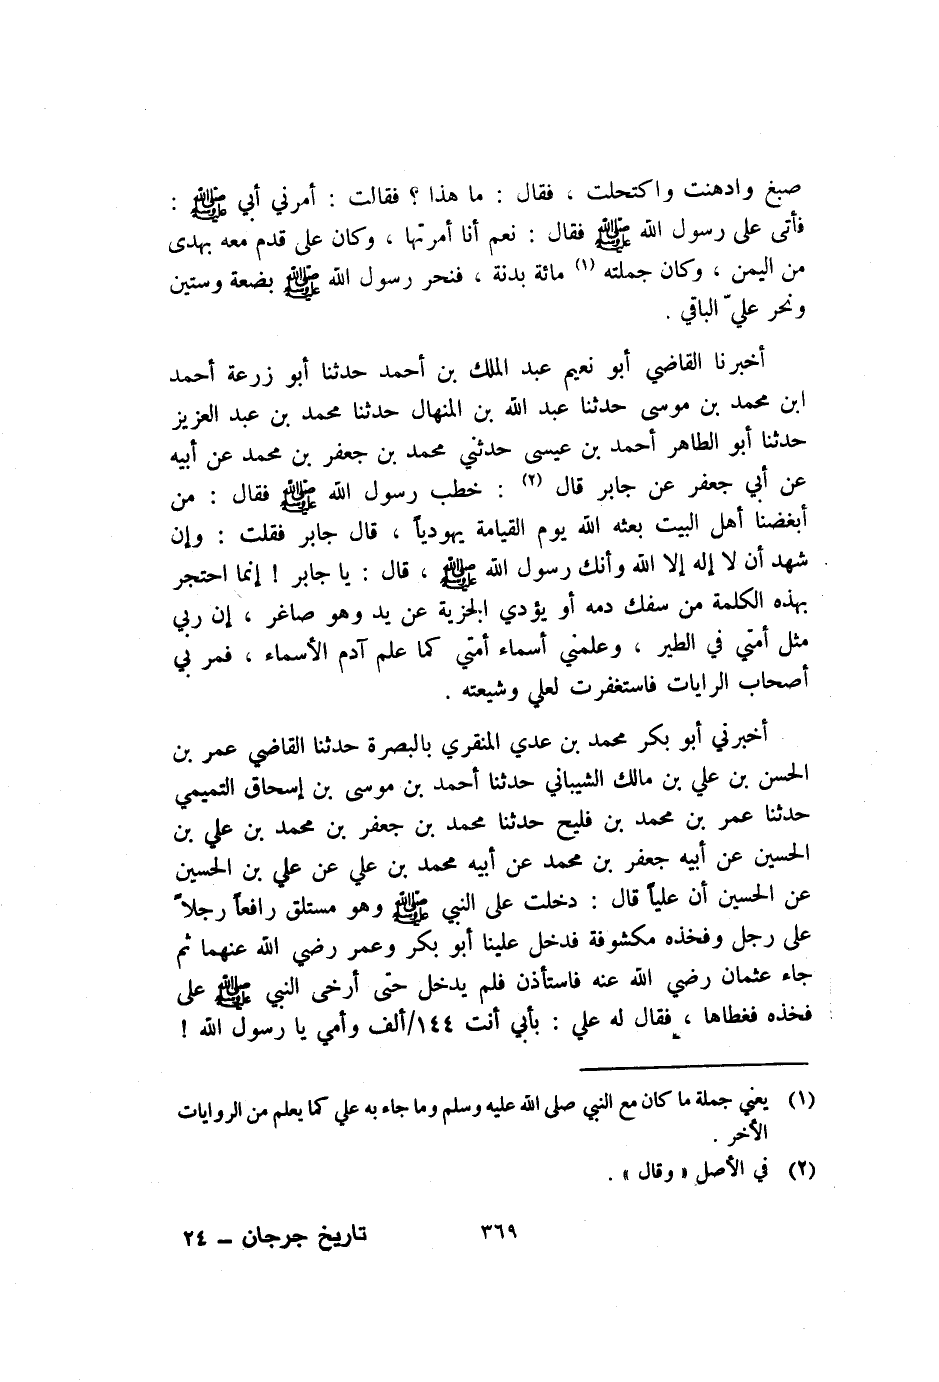 صبغ وادهنت واكتحلت ، فقال : ما هذا ؟ فقالت : أمرني أبي ﷺ :
فأتى على رسول الله ﷺ فقال : نعم أنا أمرتها ، وكان على قدم معه بهدى
من اليمن ، وكان جملته (١) مائة بدنة ، فنحر رسول الله ﷺ بضعة وستين
ونحر عليّ الباقي .
أخبرنا القاضي أبو نعيم عبد الملك بن أحمد حدثنا أبو زرعة أحمد
ابن محمد بن موسى حدثنا عبد الله بن المنهال حدثنا محمد بن عبد العزيز
حدثنا أبو الطاهر أحمد بن عيسى حدثني محمد بن جعفر بن محمد عن أبيه
عن أبي جعفر عن جابر قال (٢) : خطب رسول الله ﷺ فقال : من
أبغضنا أهل البيت بعثه الله يوم القيامة يهودياً ، قال جابر فقلت : وإن
شهد أن لا إله إلا الله وأنك رسول الله ﷺ ، قال : يا جابر ! إنما احتجر
بهذه الكلمة من سفك دمه أو يؤدي الجزية عن يد وهو صاغر ، إن ربي
مثل أمتي في الطير ، وعلمني أسماء أمتي كما علم آدم الأسماء ، فمر بي
أصحاب الرايات فاستغفرت لعلي وشيعته .
أخبرني أبو بكر محمد بن عدي المنقري بالبصرة حدثنا القاضي عمر بن
الحسن بن علي بن مالك الشيباني حدثنا أحمد بن موسى بن إسحاق التميمي
حدثنا عمر بن محمد بن فليح حدثنا محمد بن جعفر بن محمد بن علي بن
الحسين عن أبيه جعفر بن محمد عن أبيه محمد بن علي عن علي بن الحسين
عن الحسين أن علياً قال : دخلت على النبي ﷺ وهو مستلق رافعاً رجلاً
على رجل وفخذه مكشوفة فدخل علينا أبو بكر وعمر رضي الله عنهما ثم
جاء عثمان رضي الله عنه فاستأذن فلم يدخل حتى أرخى النبي ﷺ على
فخذه فغطاها ، فقال له علي : بأبي أنت ١٤٤/ألف وأمي يا رسول الله !
(١) يعني جملة ما كان مع النبي صلى الله عليه وسلم وما جاء به علي كما يعلم من الروايات
الأخر .
(٢) في الأصل « وقال » .
٣٦٩
تاريخ جرجان – ٢٤